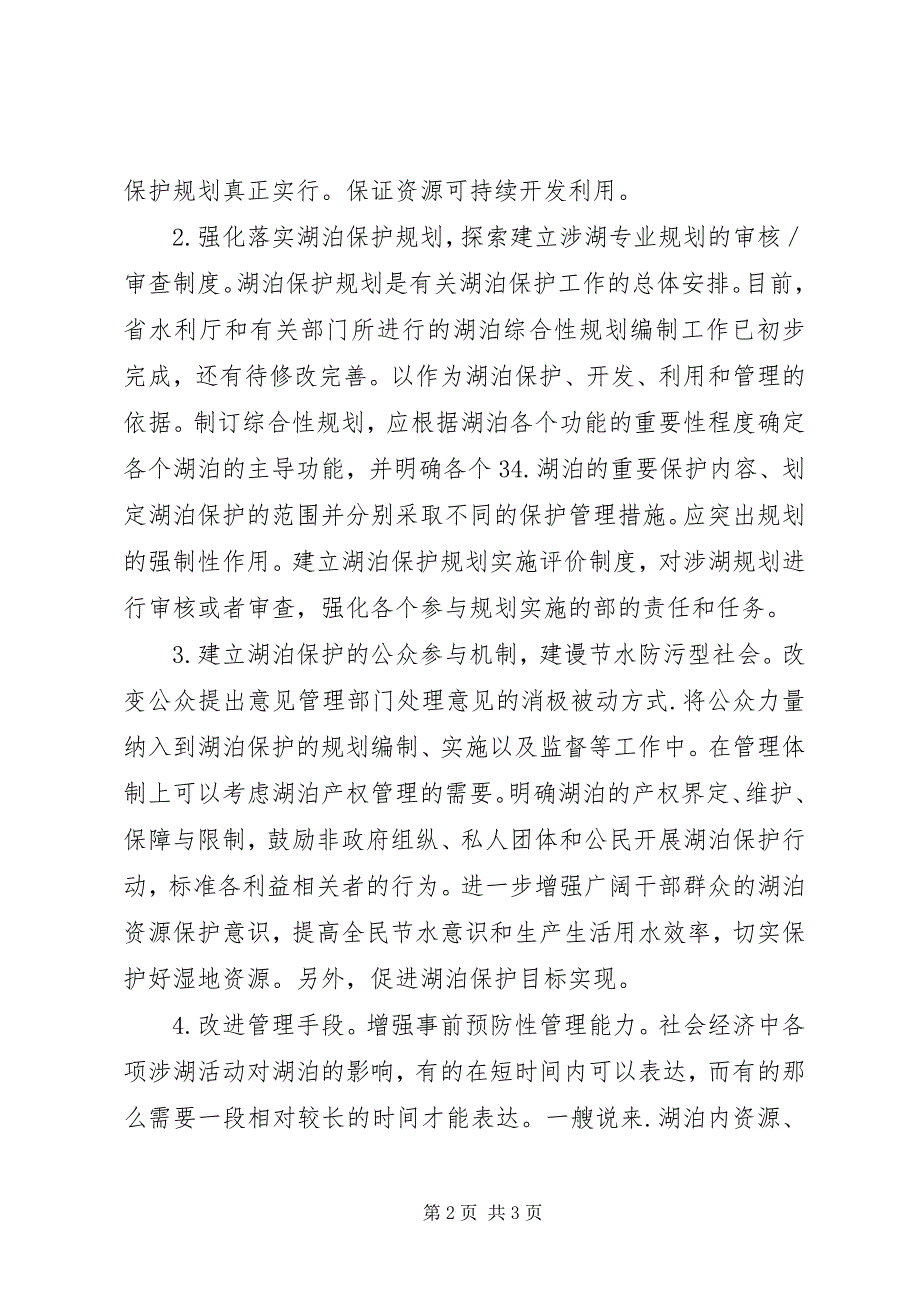 保护规划真正实行。保证资源可持续开发利用。
2.强化落实湖泊保护规划，探索建立涉湖专业规划的审核／
审查制度。湖泊保护规划是有关湖泊保护工作的总体安排。目前，
省水利厅和有关部门所进行的湖泊综合性规划编制工作已初步
完成，还有待修改完善。以作为湖泊保护、开发、利用和管理的
依据。制订综合性规划，应根据湖泊各个功能的重要性程度确定
各个湖泊的主导功能，并明确各个 34.湖泊的重要保护内容、划
定湖泊保护的范围并分别采取不同的保护管理措施。应突出规划
的强制性作用。建立湖泊保护规划实施评价制度，对涉湖规划进
行审核或者审查，强化各个参与规划实施的部的责任和任务。
3.建立湖泊保护的公众参与机制，建谩节水防污型社会。改
变公众提出意见管理部门处理意见的消极被动方式.将公众力量
纳入到湖泊保护的规划编制、实施以及监督等工作中。在管理体
制上可以考虑湖泊产权管理的需要。明确湖泊的产权界定、维护、
保障与限制，鼓励非政府组纵、私人团体和公民开展湖泊保护行
动，标准各利益相关者的行为。进一步增强广阔干部群众的湖泊
资源保护意识，提高全民节水意识和生产生活用水效率，切实保
护好湿地资源。另外，促进湖泊保护目标实现。
4.改进管理手段。增强事前预防性管理能力。社会经济中各
项涉湖活动对湖泊的影响，有的在短时间内可以表达，而有的那
么需要一段相对较长的时间才能表达。一艘说来.湖泊内资源、
第 2 页 共 3 页